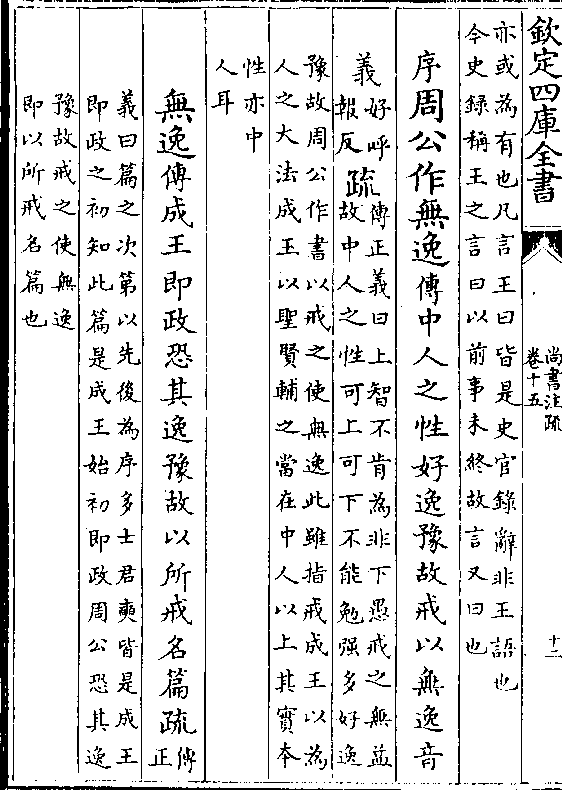 欽定四庫全書
尚書注疏
卷十五
十二
亦或為有也凡言王曰皆是史官錄辭非王語也
今史錄稱王之言曰以前事未終故言又曰也
序周公作無逸傳中人之性好逸豫故戒以無逸音
義好呼
報反
疏傳正義曰上智不肯為非下愚戒之無益
故中人之性可上可下不能勉强多好逸
豫故周公作書以戒之使無逸此雖指戒成王以為
人之大法成王以聖賢輔之當在中人以上其實本
性亦中
人耳
無逸傳成王即政恐其逸豫故以所戒名篇疏傳
正
義曰篇之次第以先後為序多士君奭皆是成王
即政之初知此篇是成王始初即政周公恐其逸
豫故戒之使無逸
即以所戒名篇也